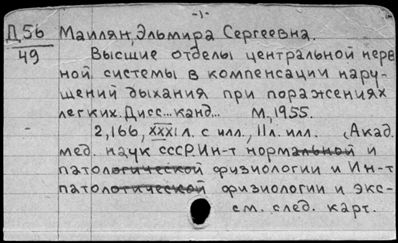 -1-
Д56 Маилян, Эльмира Сергеевна.
49 Высшие отделы центральной нерв
ной системы в компенсации нару-
щений дыхания при поражениях
легких. Дисс... канд... М, 1955.
2,166, XXXI л. с илл., 11 л. илл. (Акад.
мед. наук СССР. Ин-т нормальной и
патологической физиологии и Ин-т
патологической физиологии и экс-
см. след. карт.